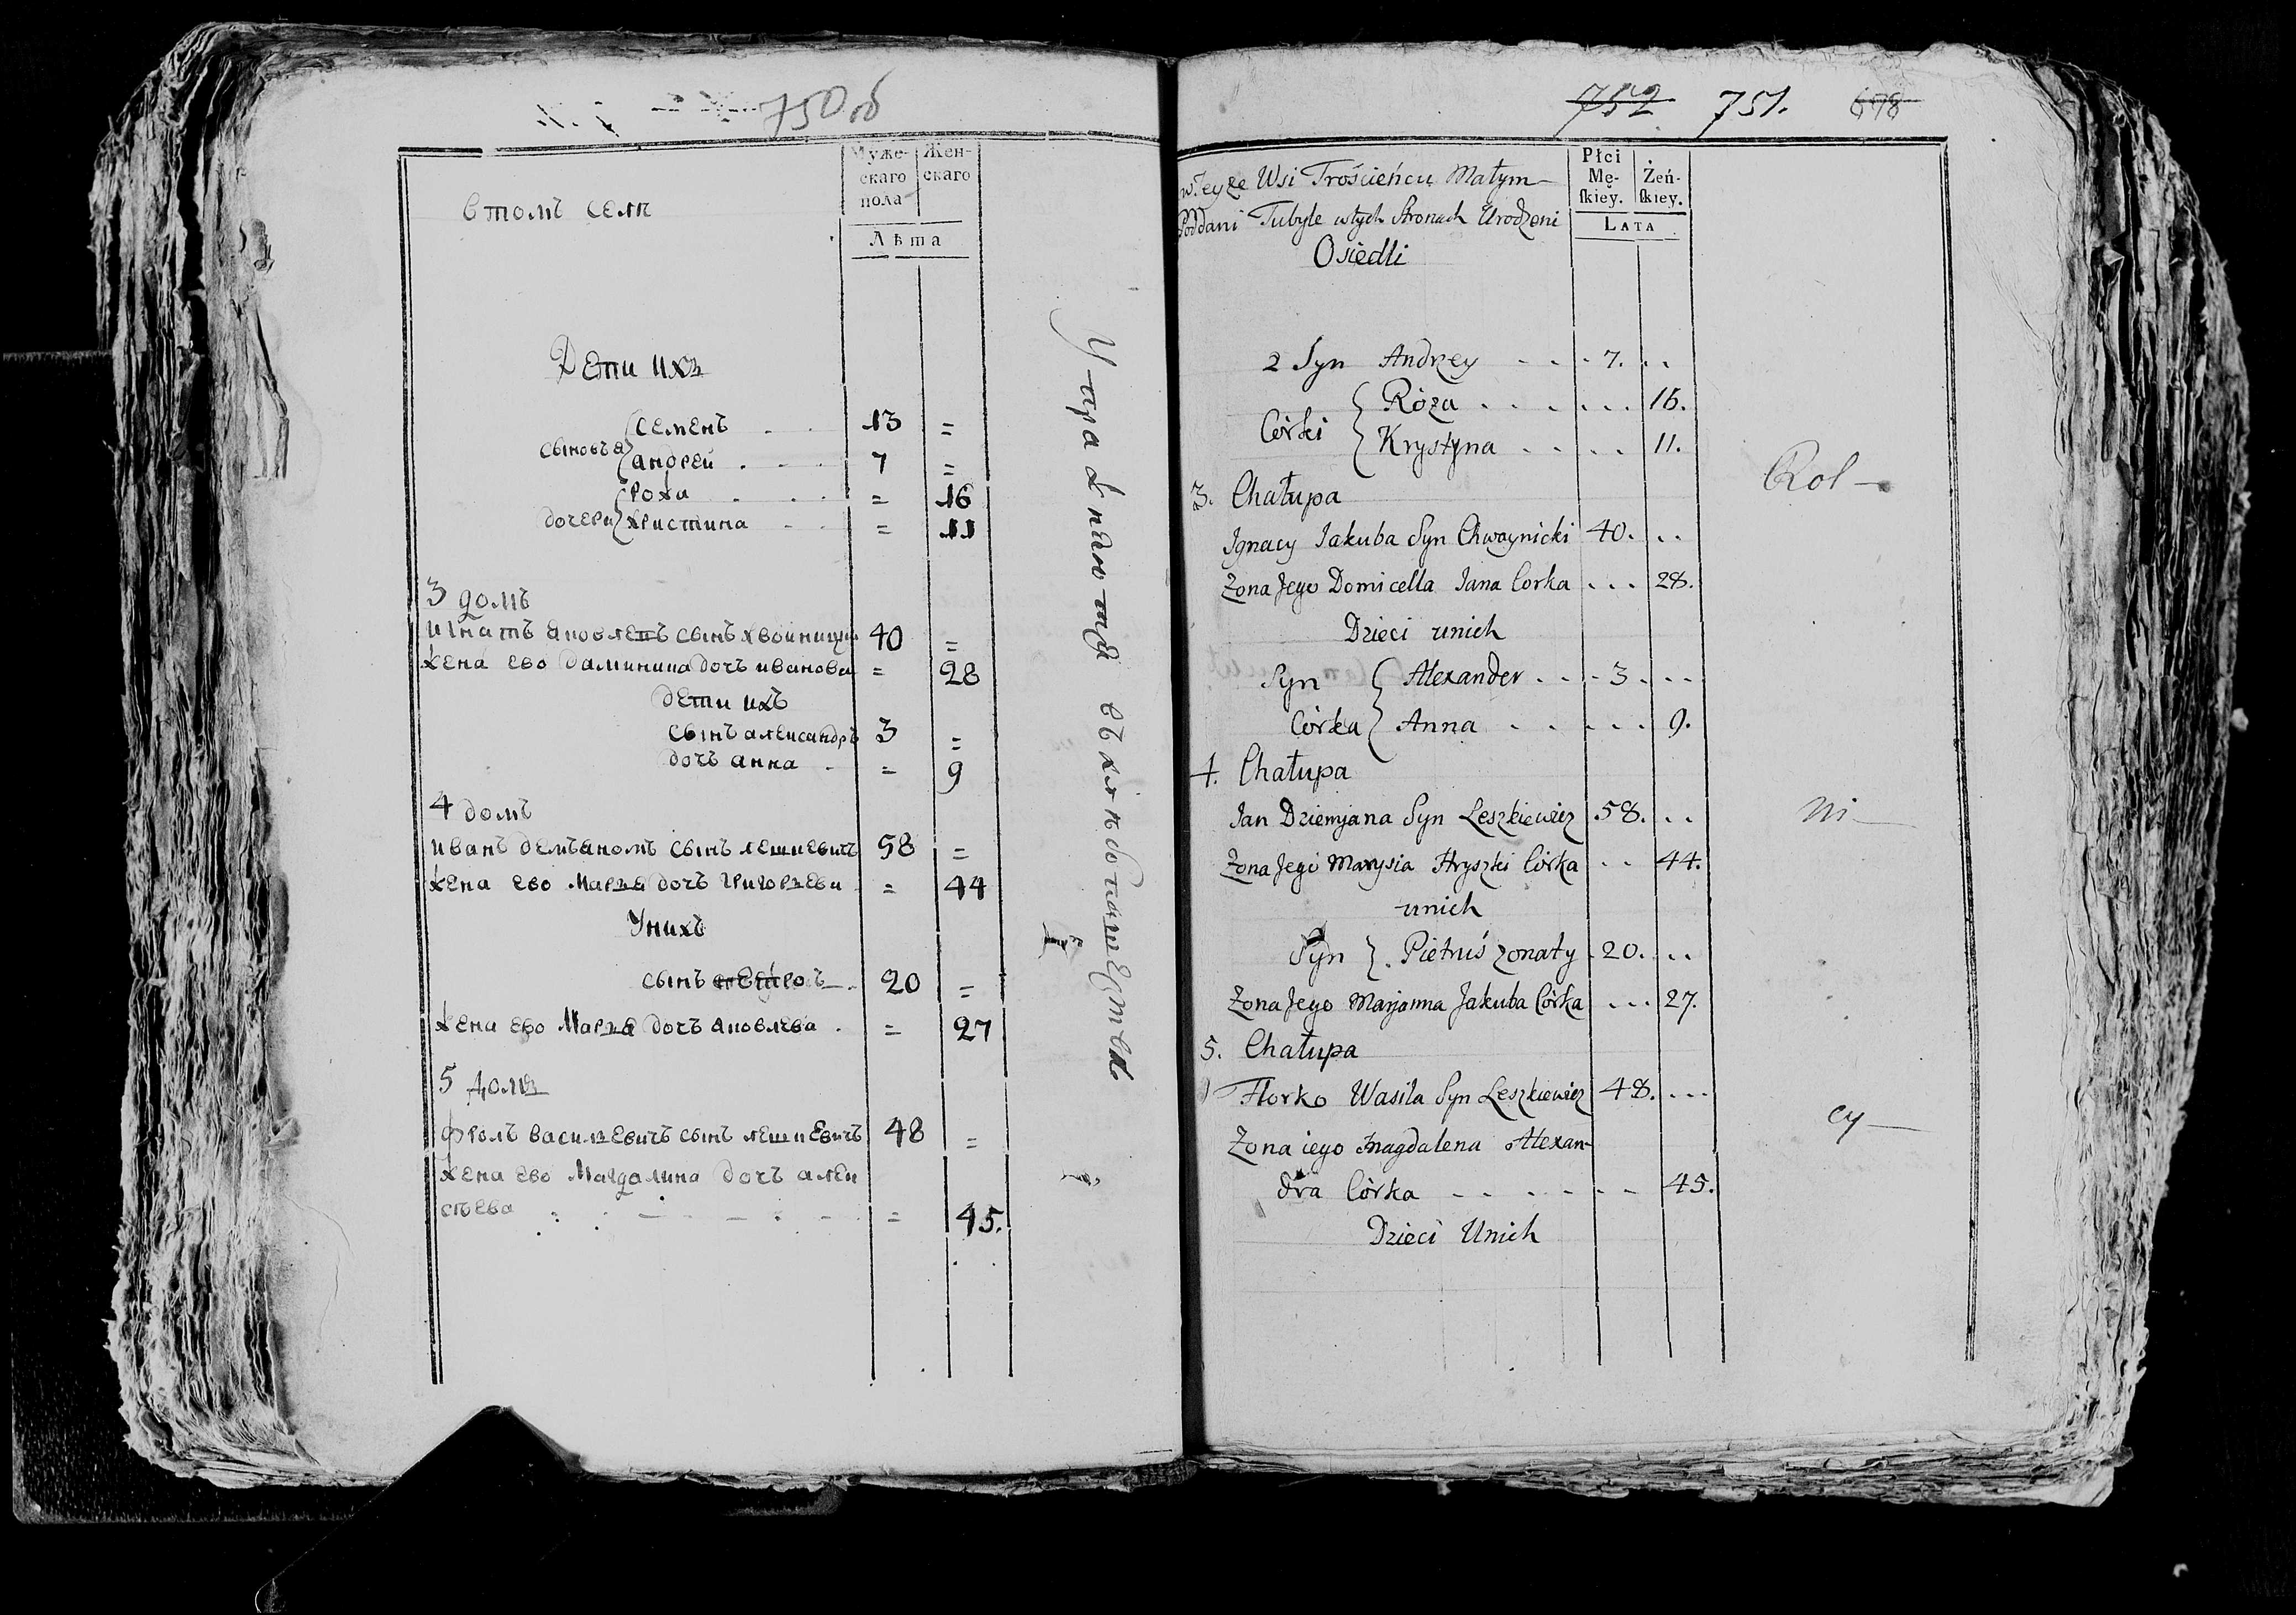 750 об
Муже- Жен-
скаго скаго
пола
Лѣта
в томъ селѣ
Дети ихъ
сыновъя { семенъ 13 =
андрей 7 =
дочери { рожа = 16
христина = 11
3 домъ
игнатъ яковлевъ сынъ хвойницки 40 =
жена ево даминика дочъ иванова = 28
дети ихъ
сынъ александръ 3 =
дочъ анна = 9
4 домъ
иванъ демъяновъ сынъ лешкевичъ 58 =
жена ево марья дочъ григорьева = 44
У нихъ
сынъ петръ 20 =
жена ево марья дочъ яковлева = 27
5 домъ
фролъ васильевичъ сынъ лешкевичъ 48 =
жена ево магдалина дочъ алек
сѣева = 45.
752 751. 678
w teyże Wsi Trościeńcu Małym
Poddani Tubyle w tych Stronach Urodzeni
Osiedli
Płci
Mę- Żeń-
ſkiey. ſkiey.
LATA
2 Syn Andrzey - - - 7. . .
Córki { Róża . . . . . . 16.
Krystyna - - . . . 11.
3. Chałupa
Ignacy Jakuba Syn Chwoynicki 40. . .
Żona Jego Domicella Jana Corka . . . 28.
Dzieci unich
Syn { Alexander . . . 3 . . .
Córka } Anna . . . . . . 9.
4. Chałupa
Jan Dziemjana Syn Leszkiewicz 58. . .
Żona Jego Marysia Hryszki Córka . . 44.
unich
Syn } Pietruś żonaty 20. . .
Żona Jego Marjanna Jakuba Córka . . . 27.
5. Chałupa
Florko Wasila Syn Leszkiewicz 48. . . .
Żona iego Magdalena Alexan-
dra Córka - - - - - - 45.
Dzieci Unich
Rol-
ni-
cy-